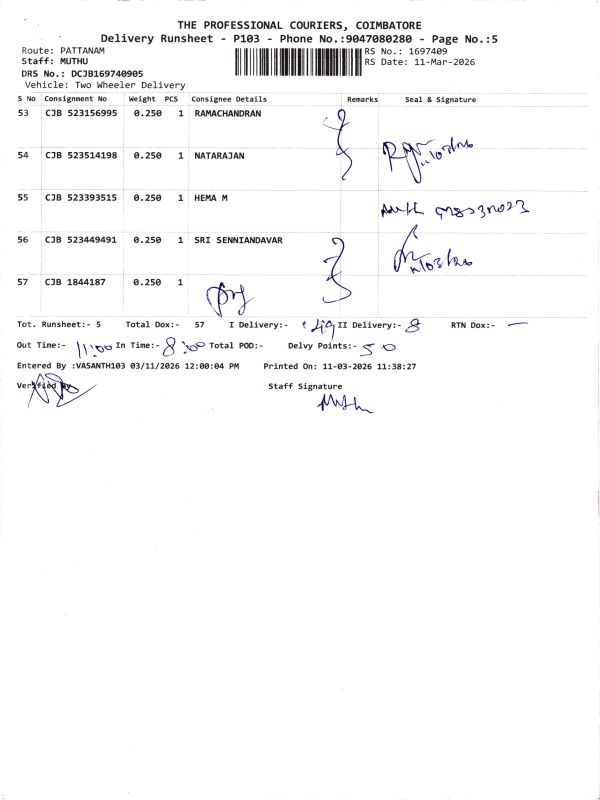 THE PROFESSIONAL COURIERS, COIMBATORE
Delivery Runsheet - P103 - Phone No.:9047080280 - Page No.:5
Route: PATTANAM RS No.: 1697409
Staff: MUTHU RS Date: 11-Mar-2026
DRS No.: DCJB169740905
Vehicle: Two Wheeler Delivery
S No Consignment No Weight PCS Consignee Details Remarks Seal & Signature
53 CJB 523156995 0.250 1 RAMACHANDRAN
54 CJB 523514198 0.250 1 NATARAJAN
55 CJB 523393515 0.250 1 HEMA M
56 CJB 523449491 0.250 1 SRI SENNIANDAVAR
57 CJB 1844187 0.250 1
Tot. Runsheet:- 5 Total Dox:- 57 I Delivery:- 49 II Delivery:- 8 RTN Dox:- —
Out Time:- 11:00 In Time:- 8:00 Total POD:- Delvy Points:- 50
Entered By :VASANTH103 03/11/2026 12:00:04 PM Printed On: 11-03-2026 11:38:27
Verified By Staff Signature